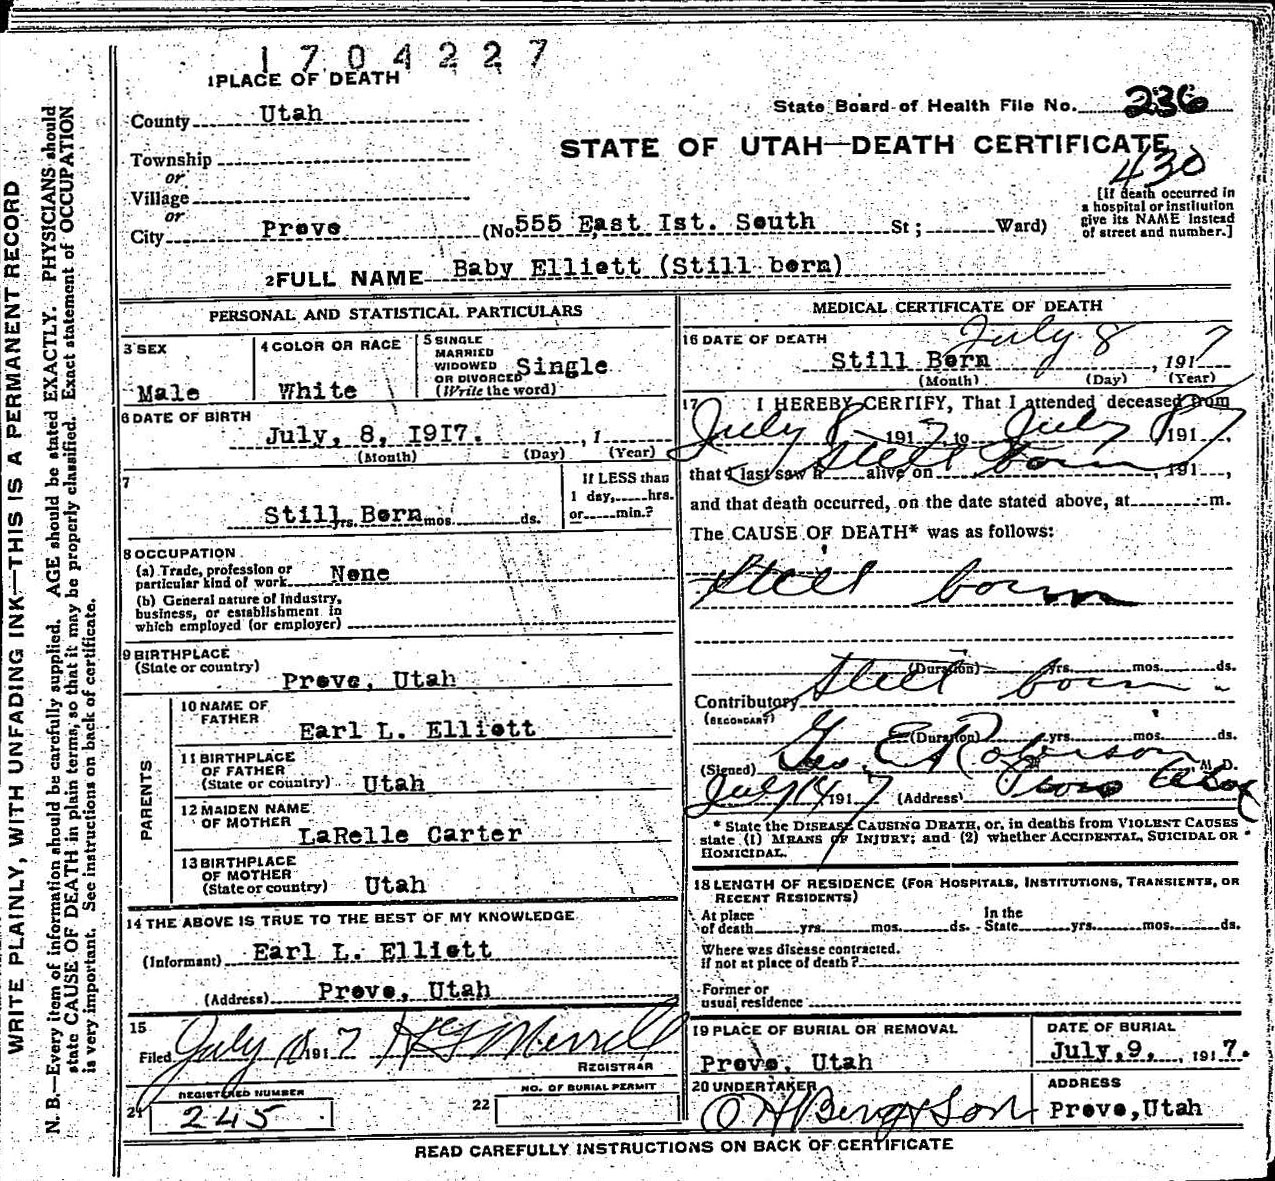 1704227
1 PLACE OF DEATH
State Board of Health File No. 236
County Utah
STATE OF UTAH—DEATH CERTIFICATE
430
Township
or
Village
or
City Provo (No 555 East 1st. South St; Ward)
[If death occurred in
a hospital or institution
give its NAME instead
of street and number.]
2 FULL NAME Baby Elliott (Still born)
PERSONAL AND STATISTICAL PARTICULARS
3 SEX
Male
4 COLOR OR RACE
White
5 SINGLE
MARRIED
WIDOWED
OR DIVORCED
(Write the word)
Single
6 DATE OF BIRTH
July, 8, 1917. , 1
(Month) (Day) (Year)
7
Still Born
yrs. mos. ds.
If LESS than
1 day, hrs.
or min.?
8 OCCUPATION
(a) Trade, profession or
particular kind of work None
(b) General nature of Industry,
business, or establishment in
which employed (or employer)
9 BIRTHPLACE
(State or country)
Provo, Utah
PARENTS
10 NAME OF
FATHER
Earl L. Elliott
11 BIRTHPLACE
OF FATHER
(State or country) Utah
12 MAIDEN NAME
OF MOTHER
LaRelle Carter
13 BIRTHPLACE
OF MOTHER
(State or country) Utah
14 THE ABOVE IS TRUE TO THE BEST OF MY KNOWLEDGE
(Informant) Earl L. Elliott
(Address) Provo, Utah
15
Filed July 191 7 Merrell
REGISTRAR
REGISTERED NUMBER
21 245
NO. OF BURIAL PERMIT
22
MEDICAL CERTIFICATE OF DEATH
16 DATE OF DEATH July 8 7
Still Born , 191
(Month) (Day) (Year)
17 I HEREBY CERTIFY, That I attended deceased from
July 8 191 7, to July 8 191 7,
that I last saw h alive on Still born , 191 ,
and that death occurred, on the date stated above, at m.
The CAUSE OF DEATH* was as follows:
Still born
(Duration) yrs. mos. ds.
Contributory Still born
(SECONDARY)
(Duration) yrs. mos. ds.
(Signed) Geo. E. Roberson M. D.
July 14 191 7 (Address) Provo Utah
* State the DISEASE CAUSING DEATH, or, in deaths from VIOLENT CAUSES
state (1) MEANS OF INJURY; and (2) whether ACCIDENTAL, SUICIDAL OR
HOMICIDAL.
18 LENGTH OF RESIDENCE (FOR HOSPITALS, INSTITUTIONS, TRANSIENTS, OR
RECENT RESIDENTS)
At place
of death yrs. mos. ds.
In the
State yrs. mos. ds.
Where was disease contracted.
if not at place of death?
Former or
usual residence
19 PLACE OF BURIAL OR REMOVAL
Provo, Utah
DATE OF BURIAL
July, 9, , 1917.
20 UNDERTAKER
O H Berg & Son
ADDRESS
Provo, Utah
READ CAREFULLY INSTRUCTIONS ON BACK OF CERTIFICATE
WRITE PLAINLY, WITH UNFADING INK—THIS IS A PERMANENT RECORD
N. B.—Every item of information should be carefully supplied. AGE should be stated EXACTLY. PHYSICIANS should
state CAUSE OF DEATH in plain terms, so that it may be properly classified. Exact statement of OCCUPATION
is very important. See instructions on back of certificate.